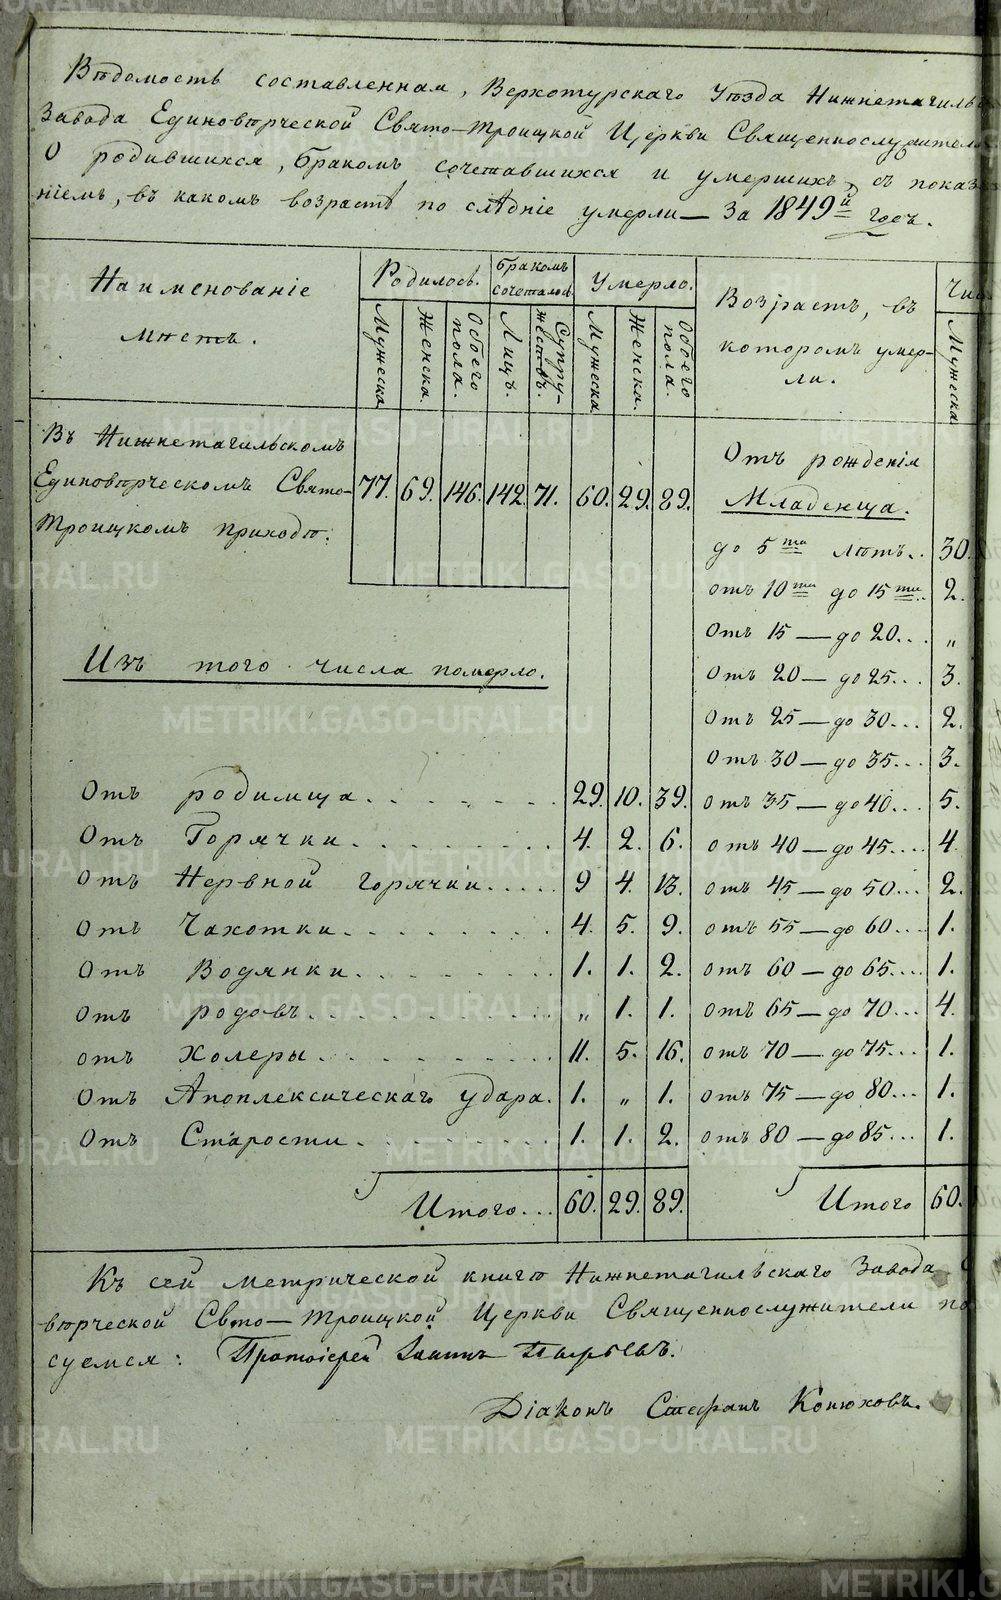 Вѣдомость составленная, Верхотурскаго Уѣзда Нижнетагильс
Завода Единовѣрческой Свято-Троицкой Церкви Священнослужителя
О родившихся, бракомъ сочетавшихся и умершихъ, съ показа
ніемъ, въ какомъ возрастѣ по слѣдніе умерли — За 1849й годъ.
Наименованіе
мѣстъ.
Родилось.
Бракомъ
сочеталось
Умерло.
Возрастъ, въ
которомъ умер-
ли.
Чис
Мужеска
Женска.
Обоего
пола.
Лицъ.
Супру-
жествъ.
Мужеска
Женска.
Обоего
пола.
Мужеска
Въ Нижнетагильскомъ
Единовѣрческомъ Свято-
Троицкомъ приходѣ:
77. 69. 146. 142. 71. 60. 29. 89.
Отъ рожденія
Младенца.
до 5ти лѣтъ.. 30.
отъ 10ти до 15ти.. 2.
Отъ 15 — до 20... „
Отъ 20 — до 25... 3.
Отъ 25 — до 30... 2.
Отъ 30 — до 35... 3.
отъ 35 — до 40... 5.
отъ 40 — до 45... 4.
отъ 45 — до 50... 2.
отъ 55 — до 60... 1.
отъ 60 — до 65... 1.
отъ 65 — до 70... 4.
отъ 70 — до 75... 1.
отъ 75 — до 80... 1.
отъ 80 — до 85... 1.
Итого 60.
Изъ того числа померло.
Отъ родимца. 29. 10. 39.
Отъ Горячки. 4. 2. 6.
Отъ Нервной горячки. 9 4. 13.
Отъ Чахотки. 4. 5. 9.
Отъ Водянки. 1. 1. 2.
Отъ родовъ. „ 1. 1.
отъ Холеры. 11. 5. 16.
Отъ Апоплексическаго удара. 1. „ 1.
Отъ Старости. 1. 1. 2.
Итого... 60. 29. 89.
Къ сей метрической книгѣ Нижнетагильскаго Завода
вѣрческой Свято-Троицкой Церкви Священнослужители по
суемся: Протоіерей Іоаннъ Пырьевъ.
Діаконъ Стефанъ Конюховъ.
METRIKI.GASO-URAL.RU